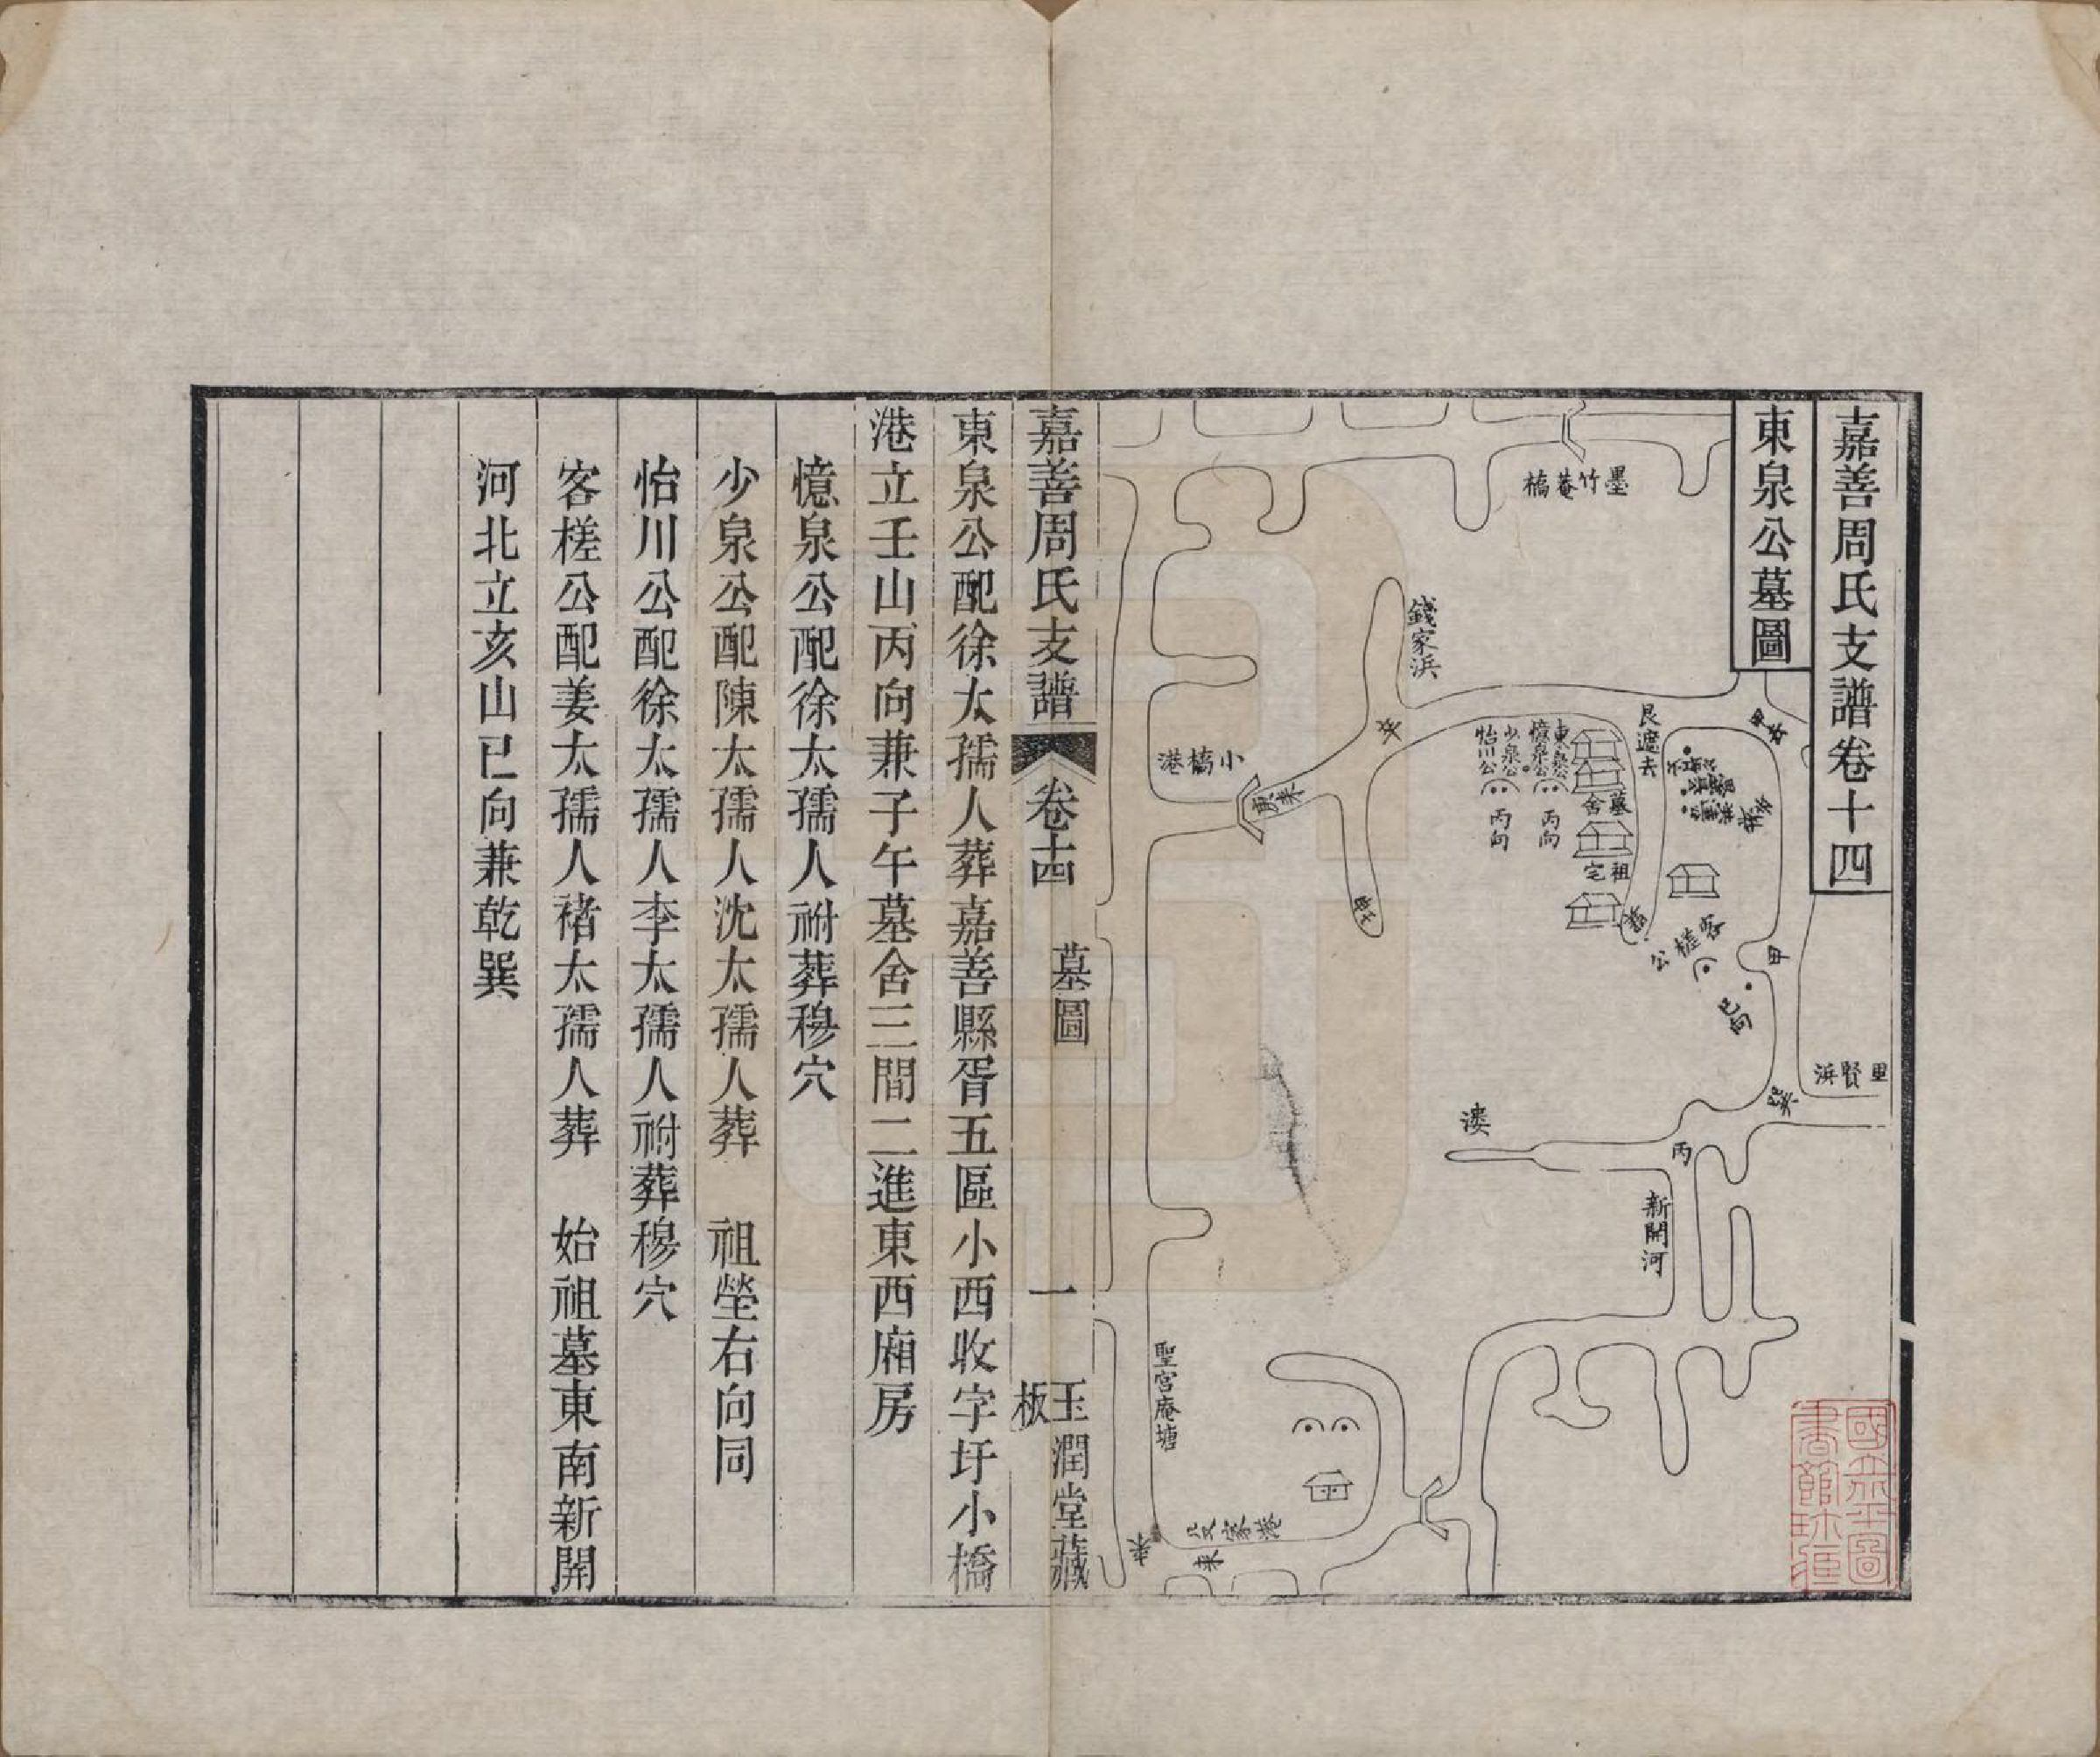 嘉善周氏支譜卷十四
東泉公墓圖
墨竹菴橋
錢家浜
艮遮去
東泉公
憶泉公
丙向
少泉公
怡川公
丙向
墓舍
祖宅
客槎公
巳向
甲
里賢浜
巽
丙
漊
新開河
小橋港
聖宮庵塘
嘉善周氏支譜
卷十四
墓圖
一
玉潤堂藏板
東泉公配徐太孺人葬嘉善縣胥五區小西收字圩小橋
港立壬山丙向兼子午墓舍三間二進東西廂房
憶泉公配徐太孺人祔葬穆穴
少泉公配陳太孺人沈太孺人葬　祖塋右向同
怡川公配徐太孺人李太孺人祔葬穆穴
客槎公配姜太孺人褚太孺人葬　始祖墓東南新開
河北立亥山巳向兼乾巽